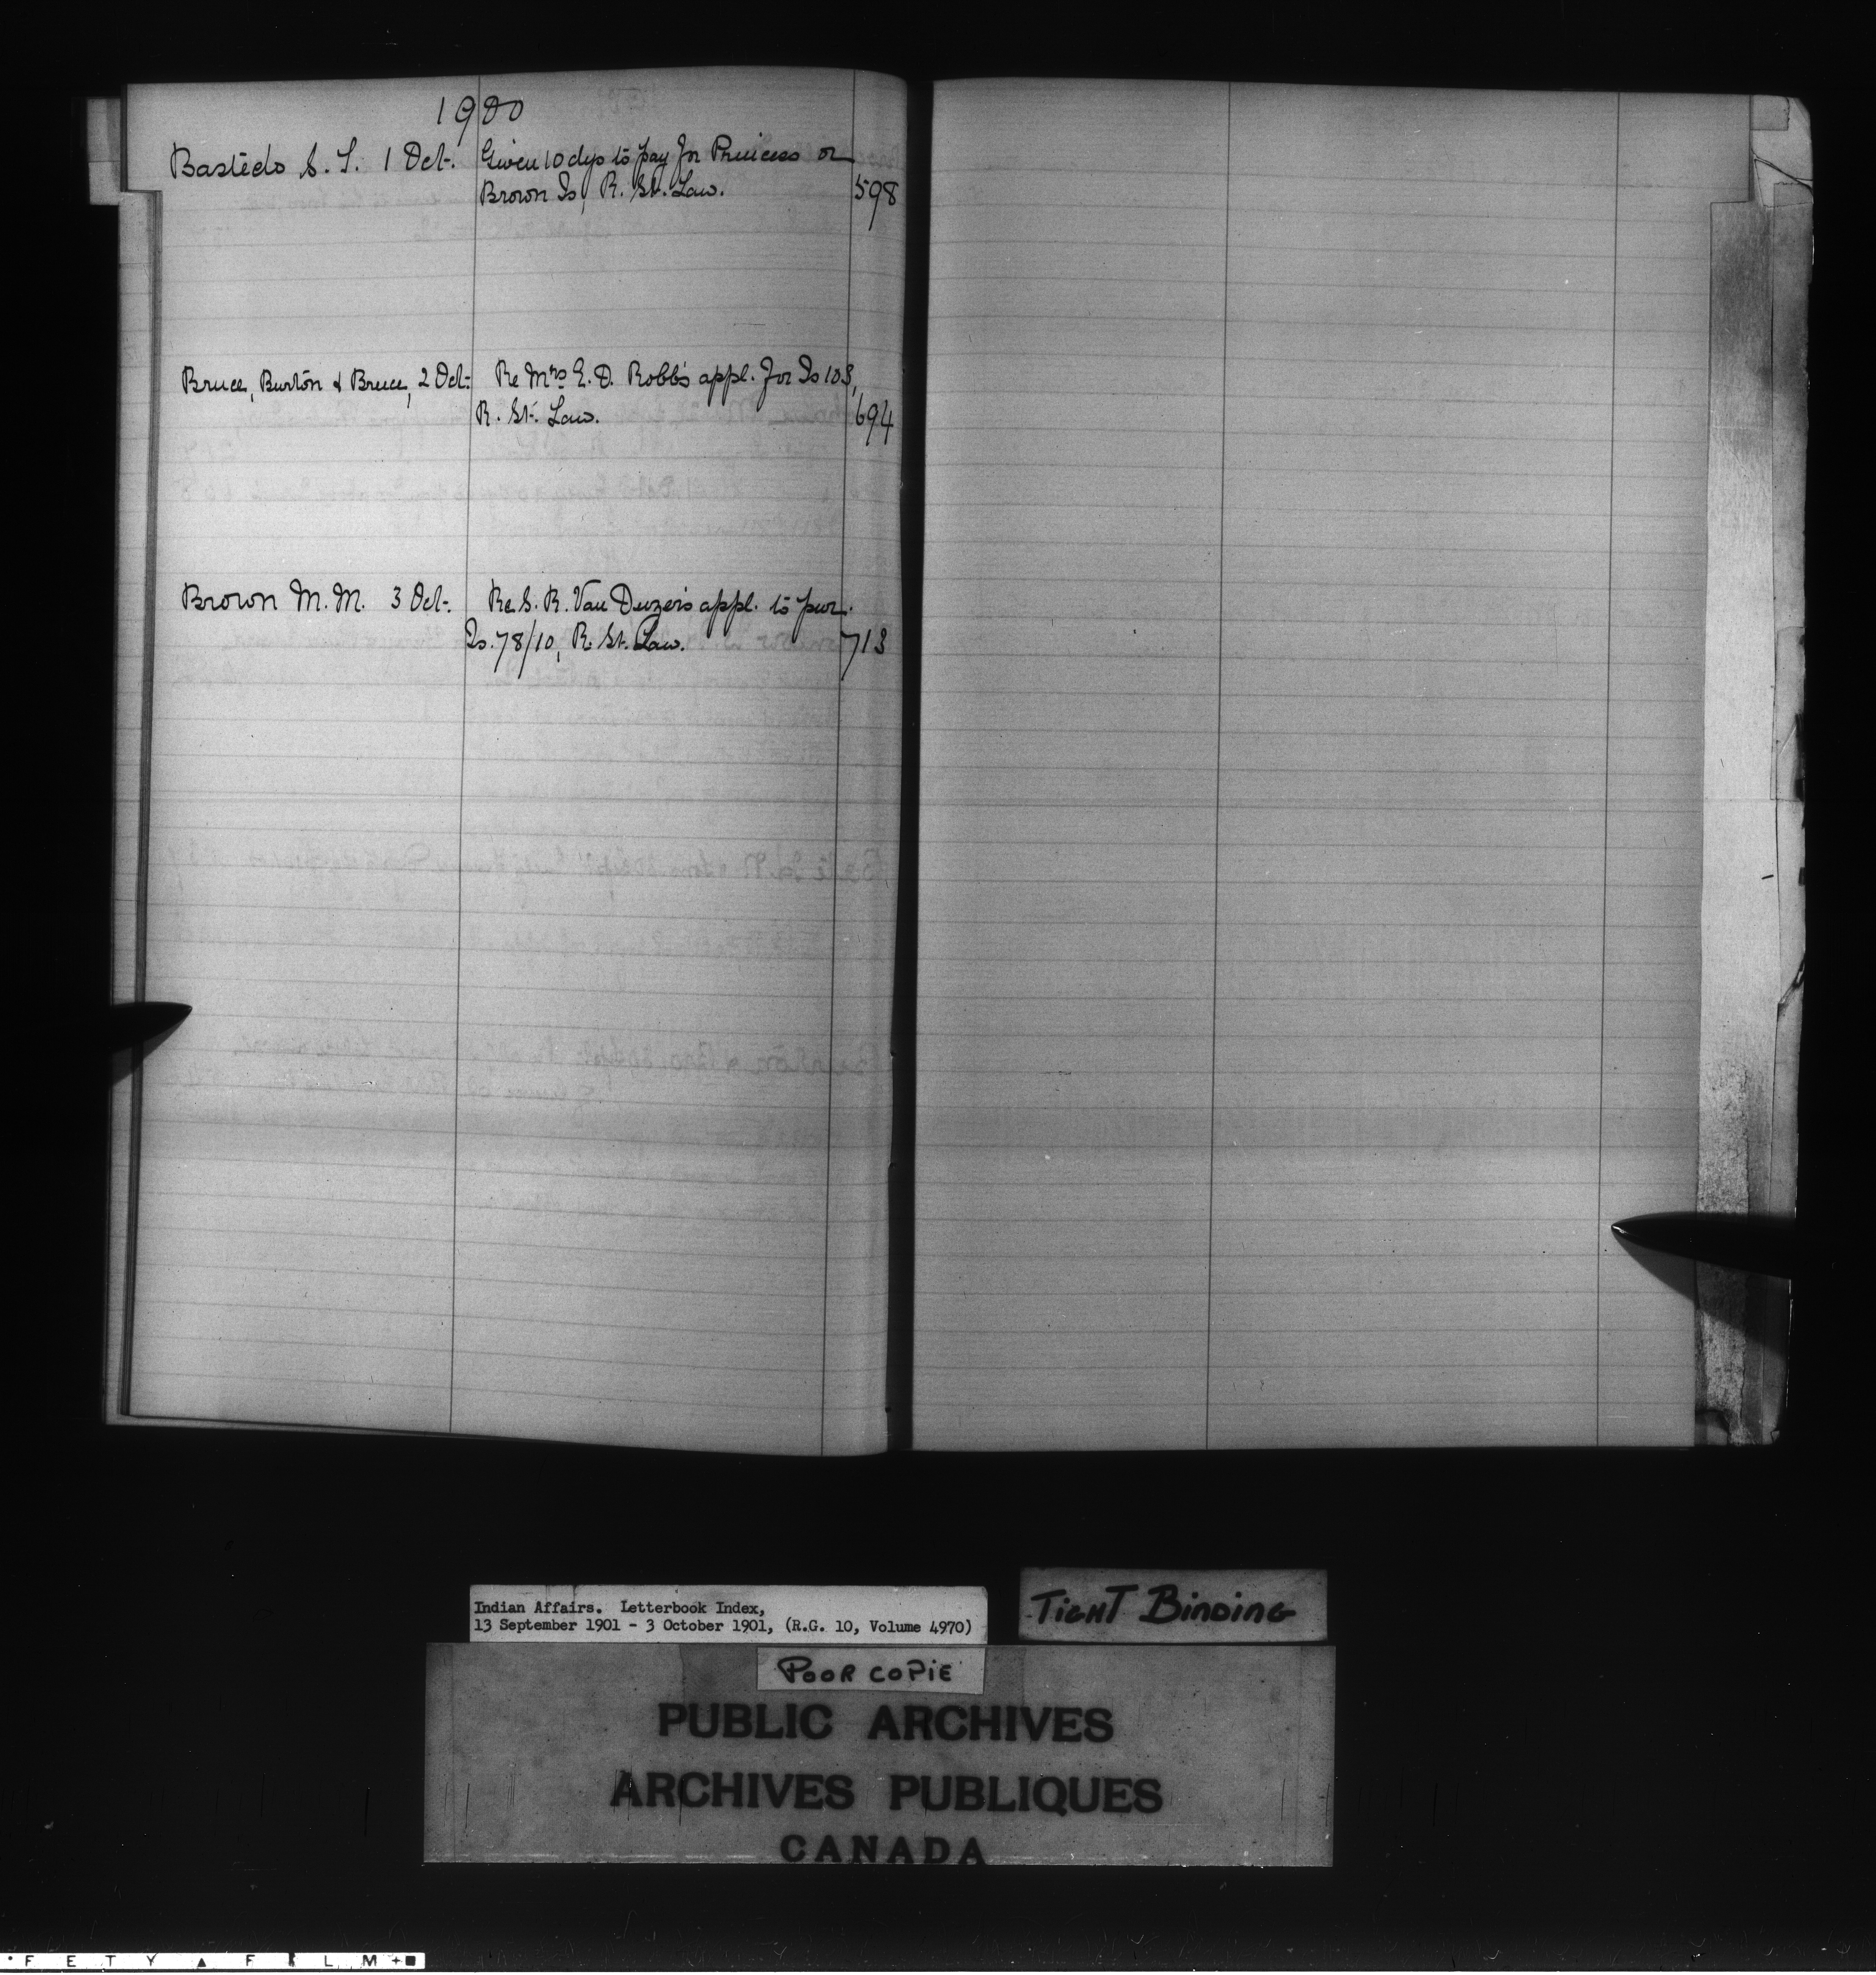 1900
Bastedo S. T. 1 Oct. Given 10 dys to pay for Princess or
Brown Is, R. St. Law. 598
Bruce, Burton & Bruce, 2 Oct. Re Mrs E. D. Robb's appl. for Is 103,
R. St. Law. 694
Brown M. M. 3 Oct. Re S. R. Van Duzer's appl. to pur.
Is. 78/10, R. St. Law. 713
Indian Affairs. Letterbook Index,
13 September 1901 - 3 October 1901, (R.G. 10, Volume 4970)
TIGHT BINDING
POOR COPIE
PUBLIC ARCHIVES
ARCHIVES PUBLIQUES
CANADA
FETY ▲ FILM